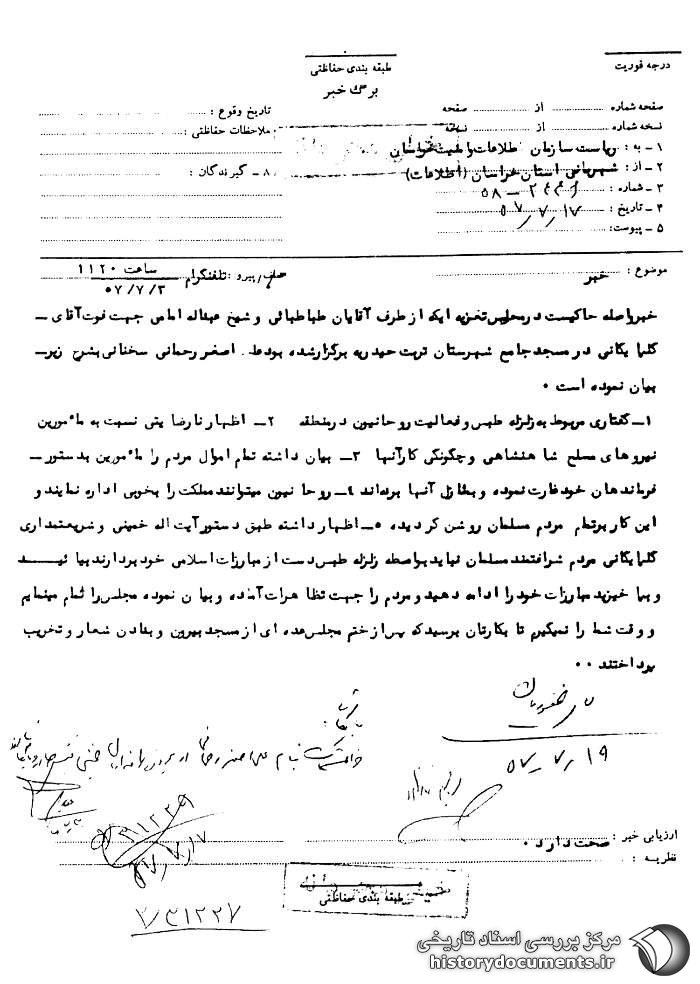 درجه فوریت
طبقه بندی حفاظتی
برگ خبر
صفحه شماره از صفحه
نسخه شماره از نسخه
تاریخ وقوع :
ملاحظات حفاظتی :
۱ـ به : ریاست سازمان اطلاعات و امنیت خراسان
۲ـ از : شهربانی استان خراسان (اطلاعات)
۳ـ شماره :
۴ـ تاریخ : ۵۷/۷/۱۷
۵ـ پیوست:
۸ـ گیرندگان :
موضوع : خبر
پیرو : تلفنگرام ساعت ۱۱۲۰
۵۷/۷/۳
خبر واصله حاکیست در مجلس تعزیه ایکه از طرف آقایان طباطبائی و شیخ عبداله امامی جهت فوت آقای ـ
گلپایگانی در مسجد جامع شهرستان تربت حیدریه برگزار شده بود اصغر رحمانی سخنانی بشرح زیرـ
بیان نموده است ۰
۱ـ گفتاری مربوط به زلزله طبس و فعالیت روحانیون در منطقه ۲ـ اظهار نارضایتی نسبت به مامورین
نیروهای مسلح شاهنشاهی و چگونگی کار آنها ۳ـ بیان داشته تمام اموال مردم را مامورین بدستور ـ
فرماندهان خود غارت نموده و بمنازل آنها برده اند ۴ـ روحانیون میتوانند مملکت را بخوبی اداره نمایند و
این کار بر تمام مردم مسلمان روشن گردیده ۵ـ اظهار داشته طبق دستور آیت اله خمینی و شریعتمداری
گلپایگانی مردم شرافتمند مسلمان نباید بواسطه زلزله طبس دست از مبارزات اسلامی خود بردارند بیائیــد
و بپا خیزید مبارزات خود را ادامه دهید و مردم را جهت تظاهرات آماده و بیان نموده مجلس را تمام مینمایم
و وقت شما را نمیگیرم تا بکارتان برسید که پس از ختم مجلس عده ای از مسجد بیرون و بدادن شعار و تخریب
پرداختند ۰۰
۵۷/۷/۱۹
۵۷/۷/۱۷
ارزیابی خبر : صحت دارد ۰
نظریه :
طبقه بندی حفاظتی
۳۱۲۲۷/
مرکز بررسی اسناد تاریخی
historydocuments.ir